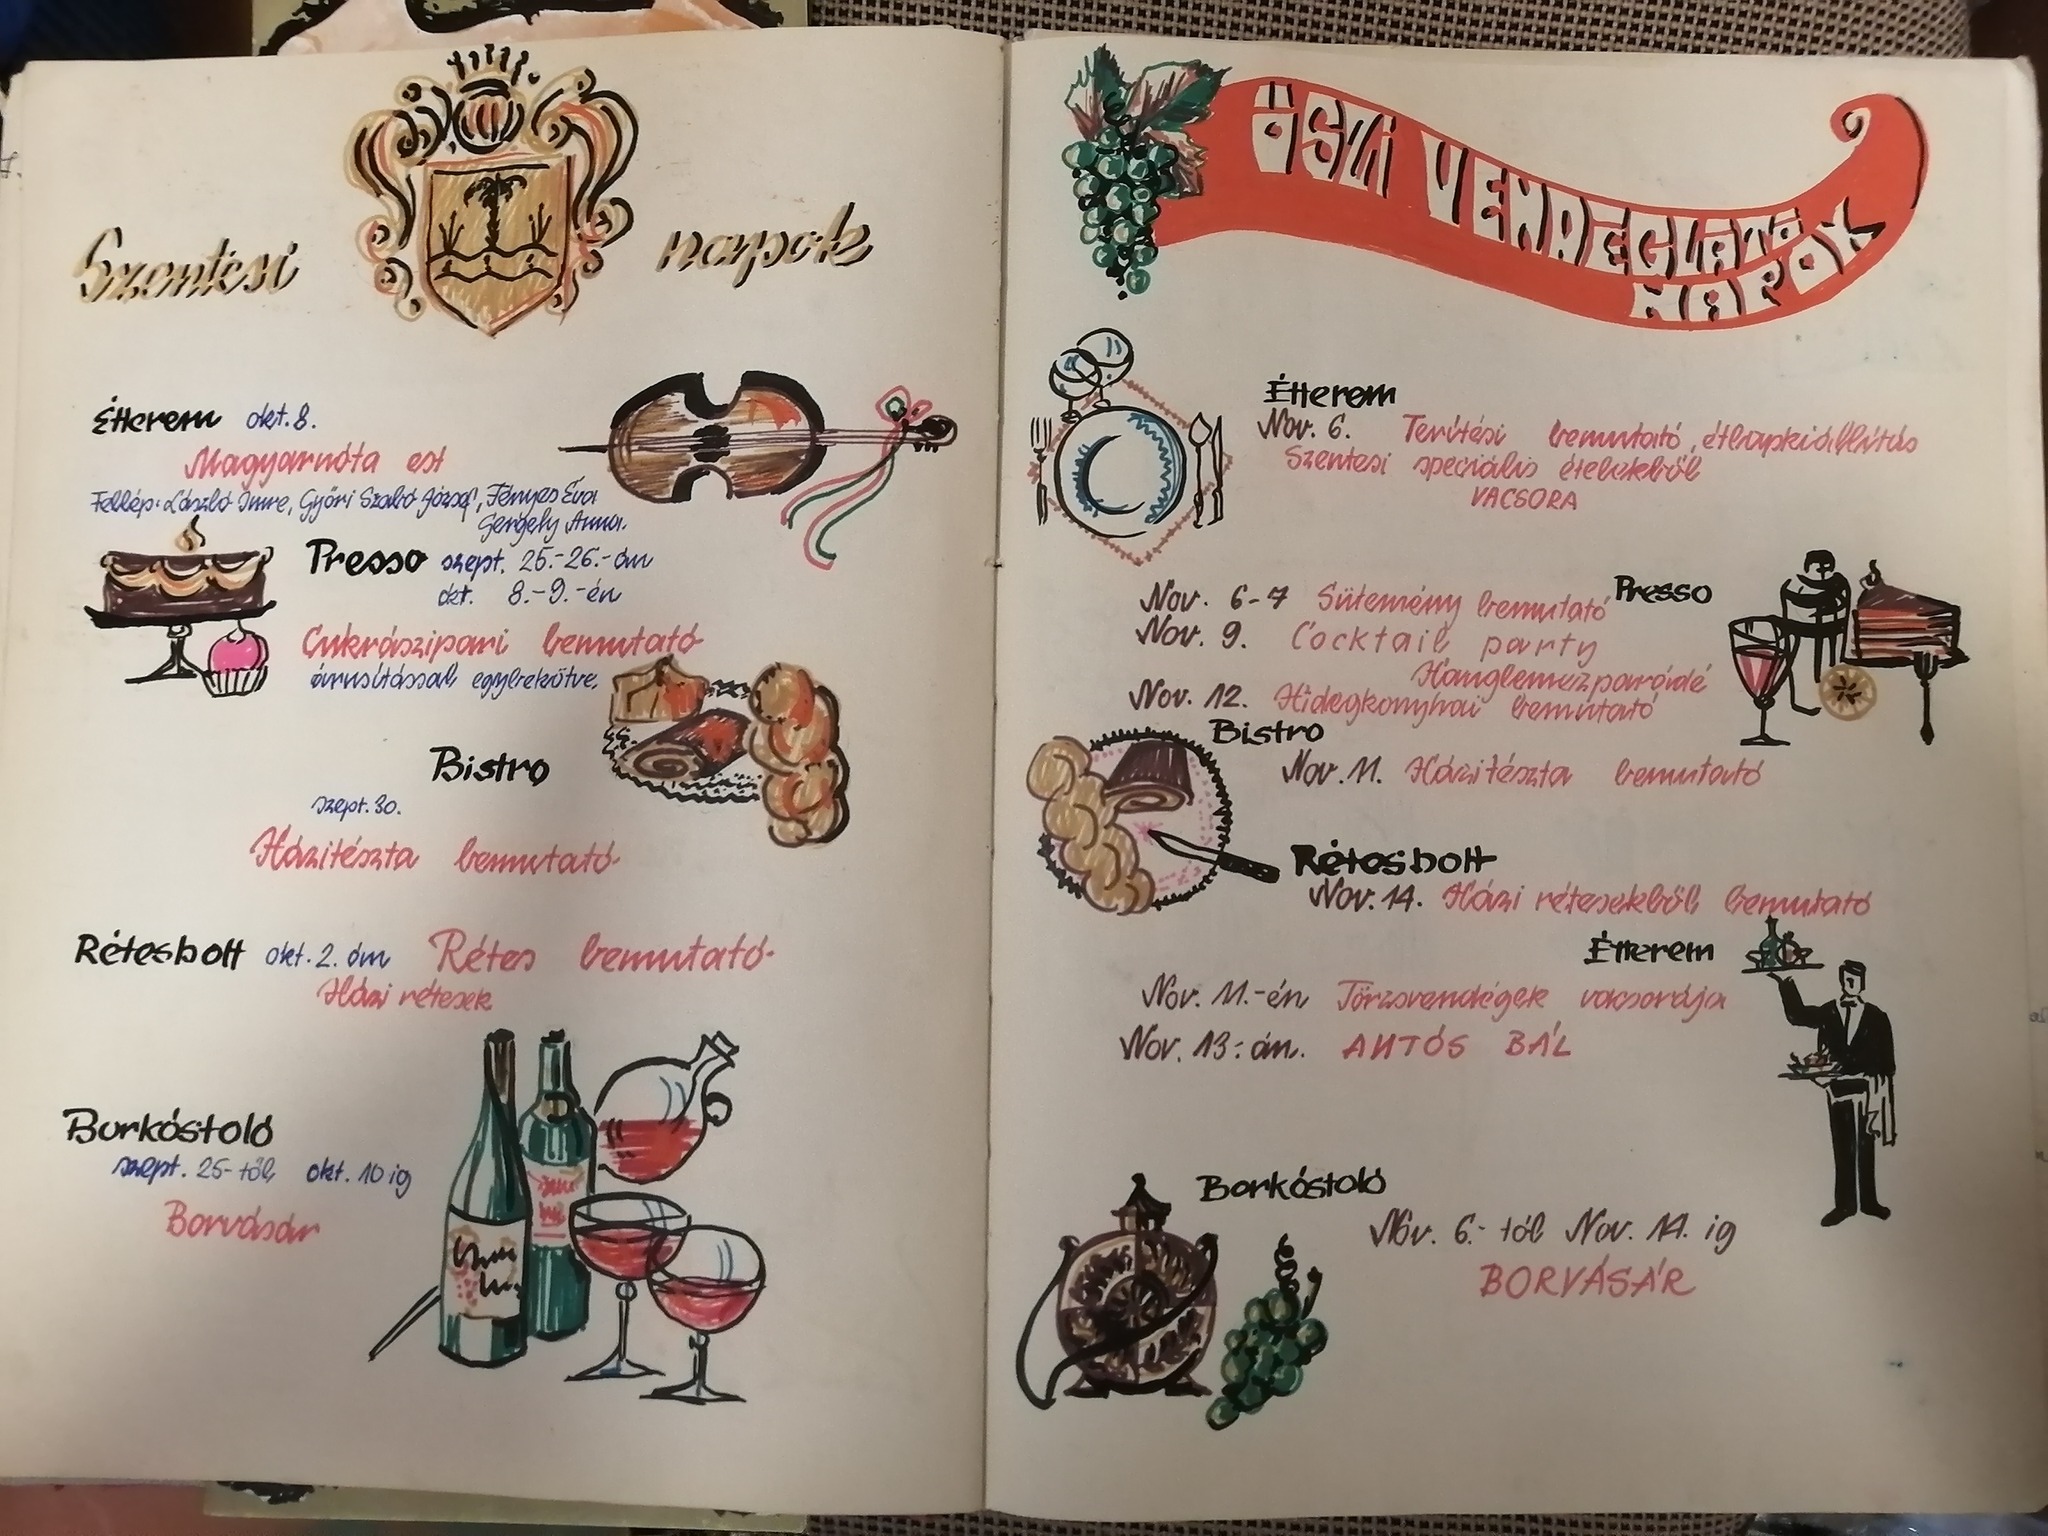 Szentesi napok
Étterem okt. 8.
Magyarnóta est
Fellép: László Imre, Győri Szabó József, Fényes Éva
Gergely Anna.
Presso szept. 25.-26.-án
okt. 8.-9.-én
Cukrászipari bemutató
árusítással egybekötve.
Bistro
szept. 30.
Házitészta bemutató
Rétesbolt okt. 2. án Rétes bemutató
Házi rétesek
Borkóstoló
szept. 25-től okt. 10 ig
Borvásár
ŐSZI VENDÉGLÁTÓ
NAPOK
Étterem
Nov. 6. Terítési bemutató, étlapkiállítás
Szentesi speciális ételekből
VACSORA
Presso
Nov. 6-7 Sütemény bemutató
Nov. 9. Cocktail party
Hanglemezparódé
Nov. 12. Hidegkonyhai bemutató
Bistro
Nov. 11. Házitészta bemutató
Rétesbolt
Nov. 14. Házi rétesekből bemutató
Étterem
Nov. 11.-én Törzsvendégek vacsorája
Nov. 13.-án. AUTÓS BÁL
Borkóstoló
Nov. 6.-tól Nov. 14. ig
BORVÁSÁR